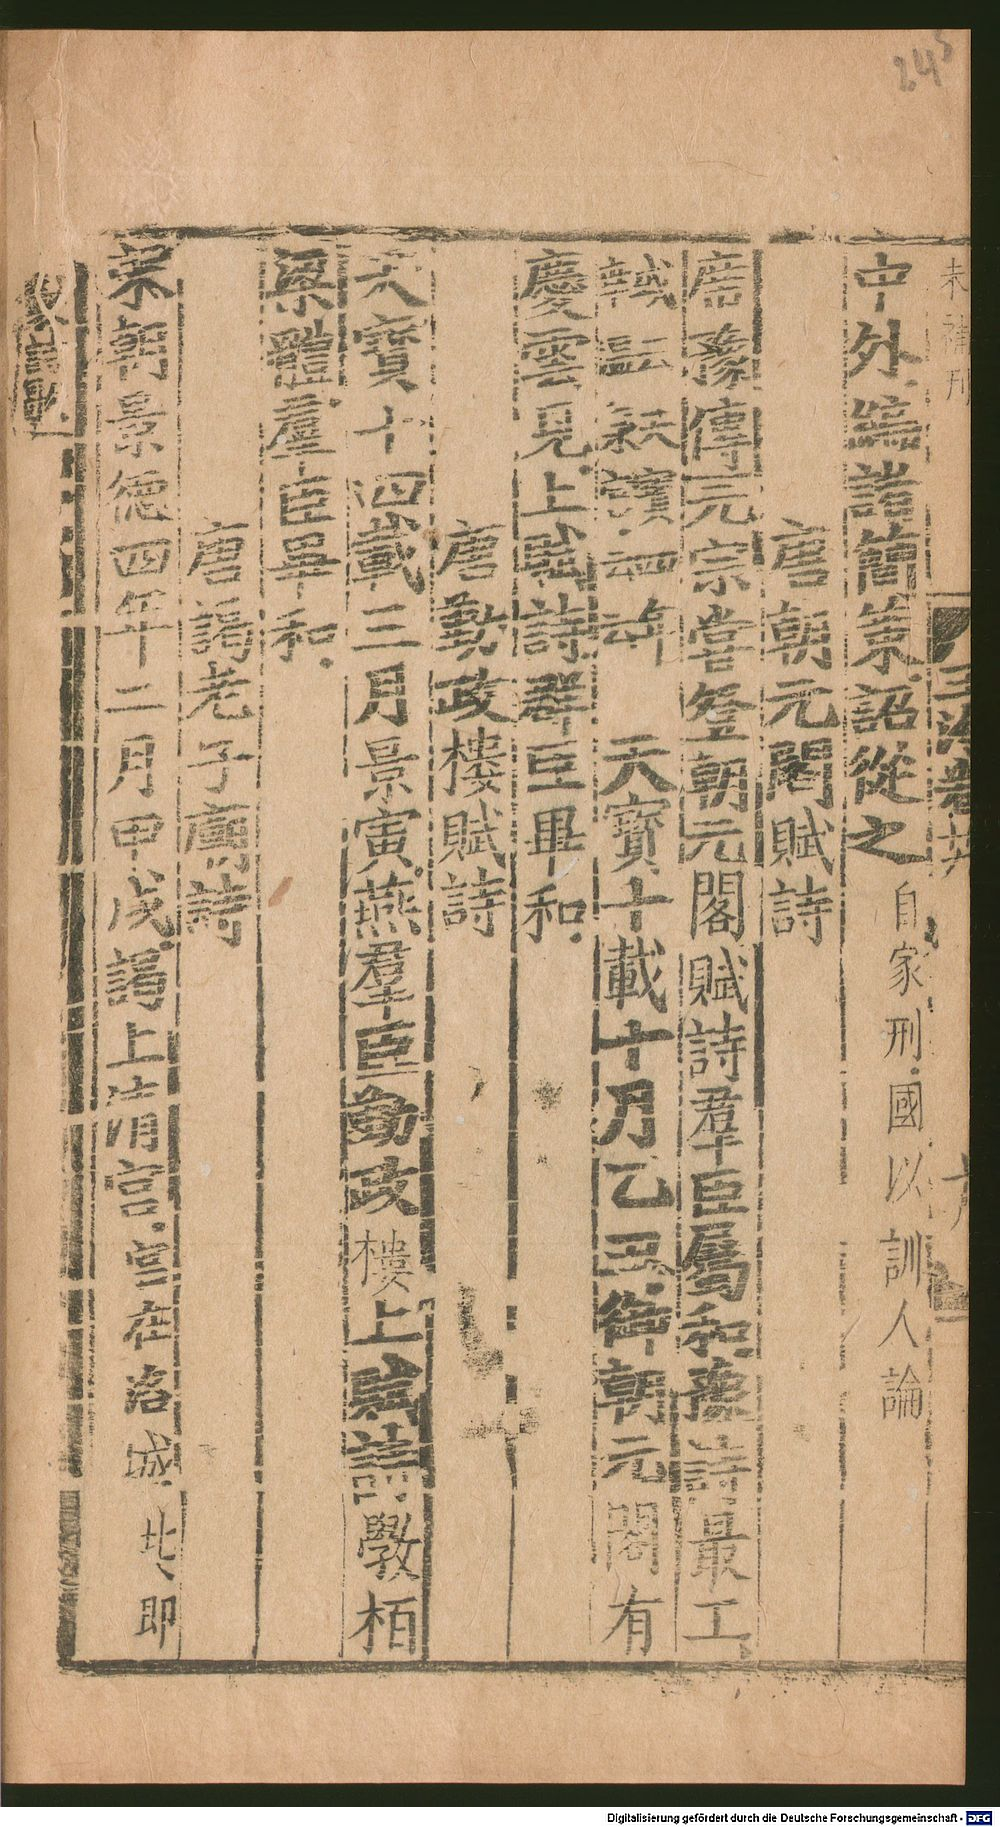 未補刊
中外簡策詔從之自家刑國以訓人論
唐朝元閣賦詩
席豫傳元宗嘗登朝元閣賦詩羣臣屬和豫詩最工
天寶十載十月乙丑御朝元閣有
慶雲見上賦詩群臣畢和
唐勤政樓賦詩
天寶十四載三月景寅燕羣臣勤政樓上賦詩斆栢
梁體羣臣畢和
唐謁老子廟詩
宋朝景德四年二月甲戌謁上清宮宮在洛城北即
Digitalisierung gefördert durch die Deutsche Forschungsgemeinschaft - DFG